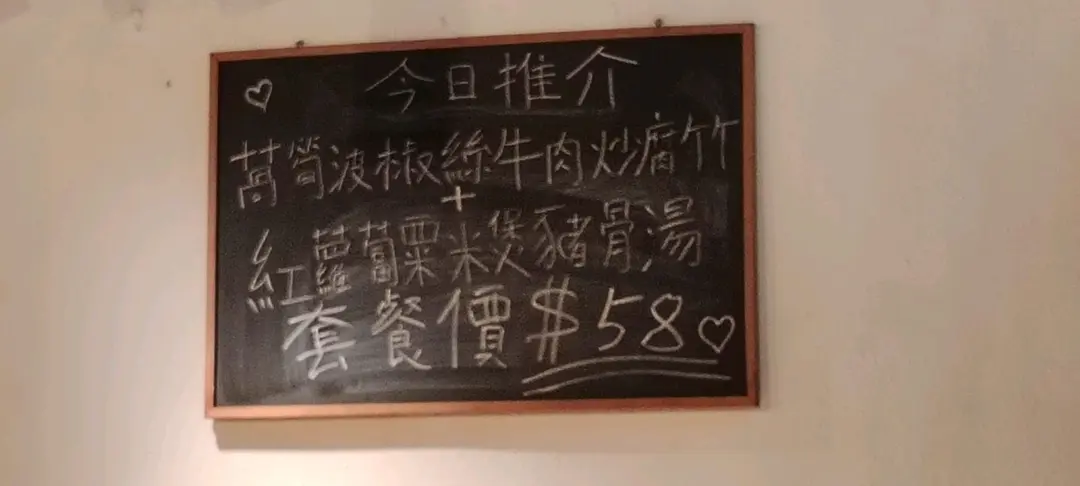 今日推介
萵筍波椒絲牛肉炒腐竹
+
紅蘿蔔粟米煲豬骨湯
套餐價$58